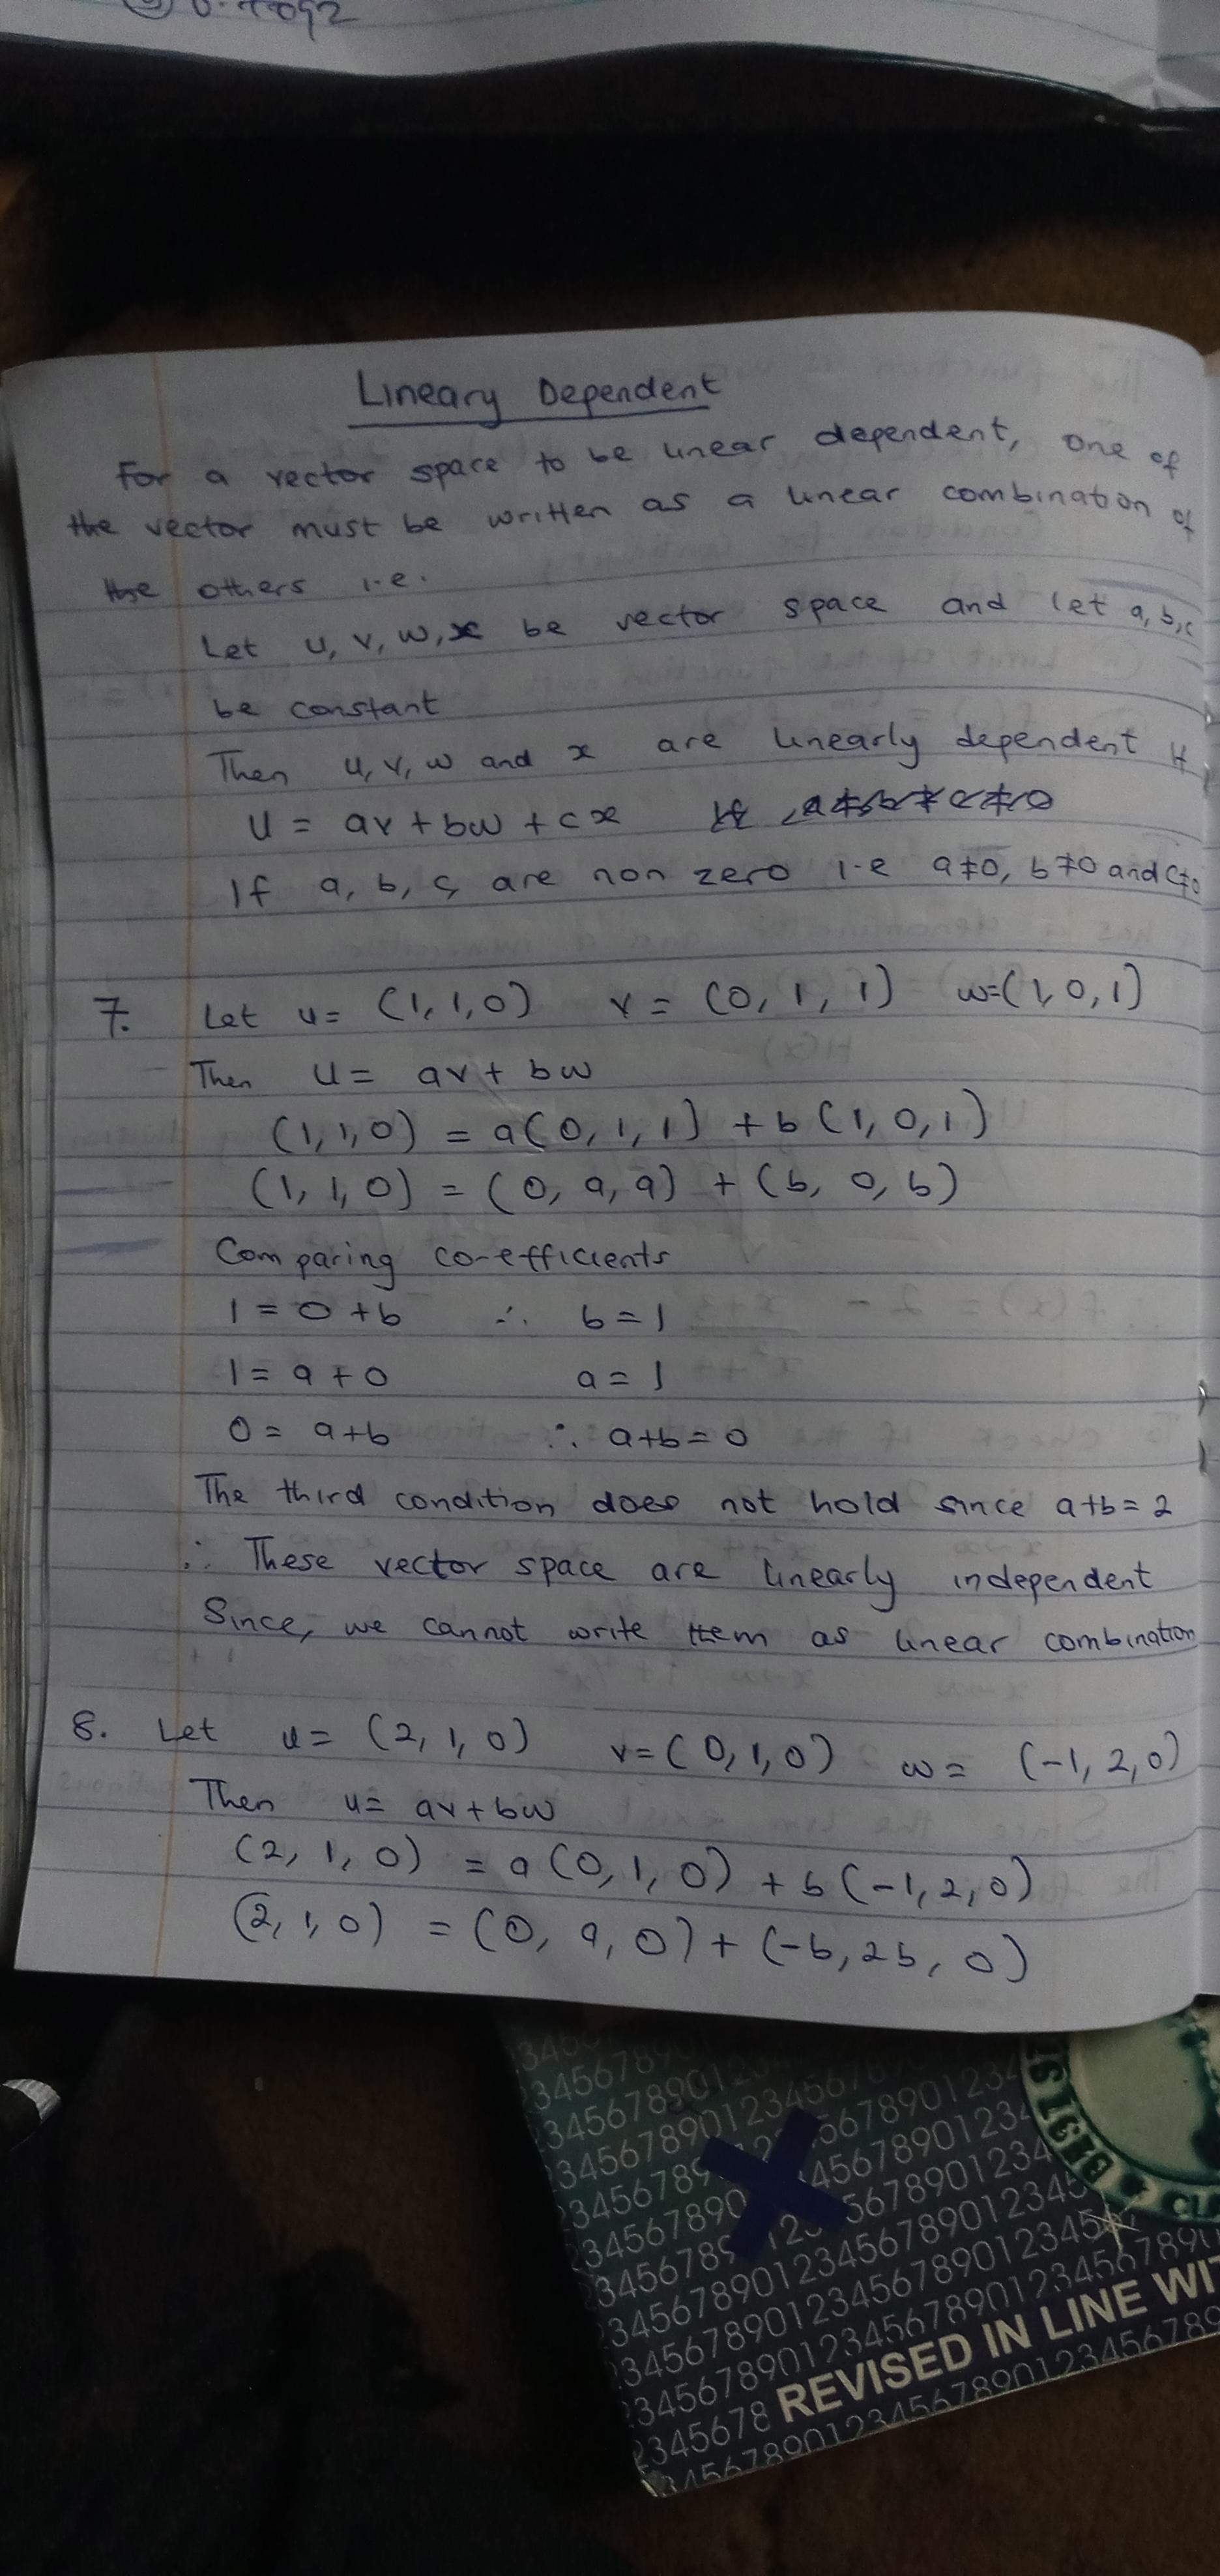 Lineary Dependent
For a vector space to be linear dependent, one of
the vector must be written as a linear combination of
the others i.e.
Let u, v, w, x be vector space and let a, b, c
be constant
Then u, v, w and x are linearly dependent if
u = av + bw + cx
If a, b, c, are non zero i.e a≠0, b≠0 and c≠0
7. Let u = (1, 1, 0) v = (0, 1, 1) w=(1, 0, 1)
Then u = av + bw
(1, 1, 0) = a(0, 1, 1) + b(1, 0, 1)
(1, 1, 0) = (0, a, a) + (b, 0, b)
Comparing co-efficients
1 = 0 + b ∴ b = 1
1 = a + 0 a = 1
0 = a+b ∴ a+b = 0
The third condition does not hold since a+b = 2
∴ These vector space are linearly independent
Since, we cannot write them as linear combination
8. Let u = (2, 1, 0) v = (0, 1, 0) w = (-1, 2, 0)
Then u = av + bw
(2, 1, 0) = a(0, 1, 0) + b(-1, 2, 0)
(2, 1, 0) = (0, a, 0) + (-b, 2b, 0)
REVISED IN LINE WIT